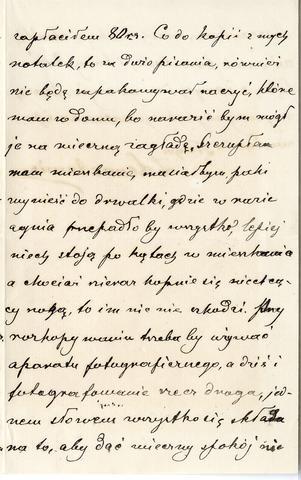 zapłaciłem 80 cr. Co do kopii z mych
notatek, to za dużo pisania, również
nie będę zapakowywał naczyń, które
mam w domu, bo narazić bym mógł
je na wieczną zagładę, Szczupłe
mam mieszkanie, musiałbym, paki
wynieść do drwalki, gdzie w razie
ognia przepadło by wszystko, lepiej
niech stoją po kątach w mieszkania
a chociaż nieraz kopnie się niechcą-
cy nogą, to im nic nie szkodzi. Przy
rozkopywaniu trzeba by używać
aparatu fotograficznego, a dziś i
fotografowanie rzecz droga, jed-
nem słowem wszystko się składa
na to, aby dać wieczny spokój nie